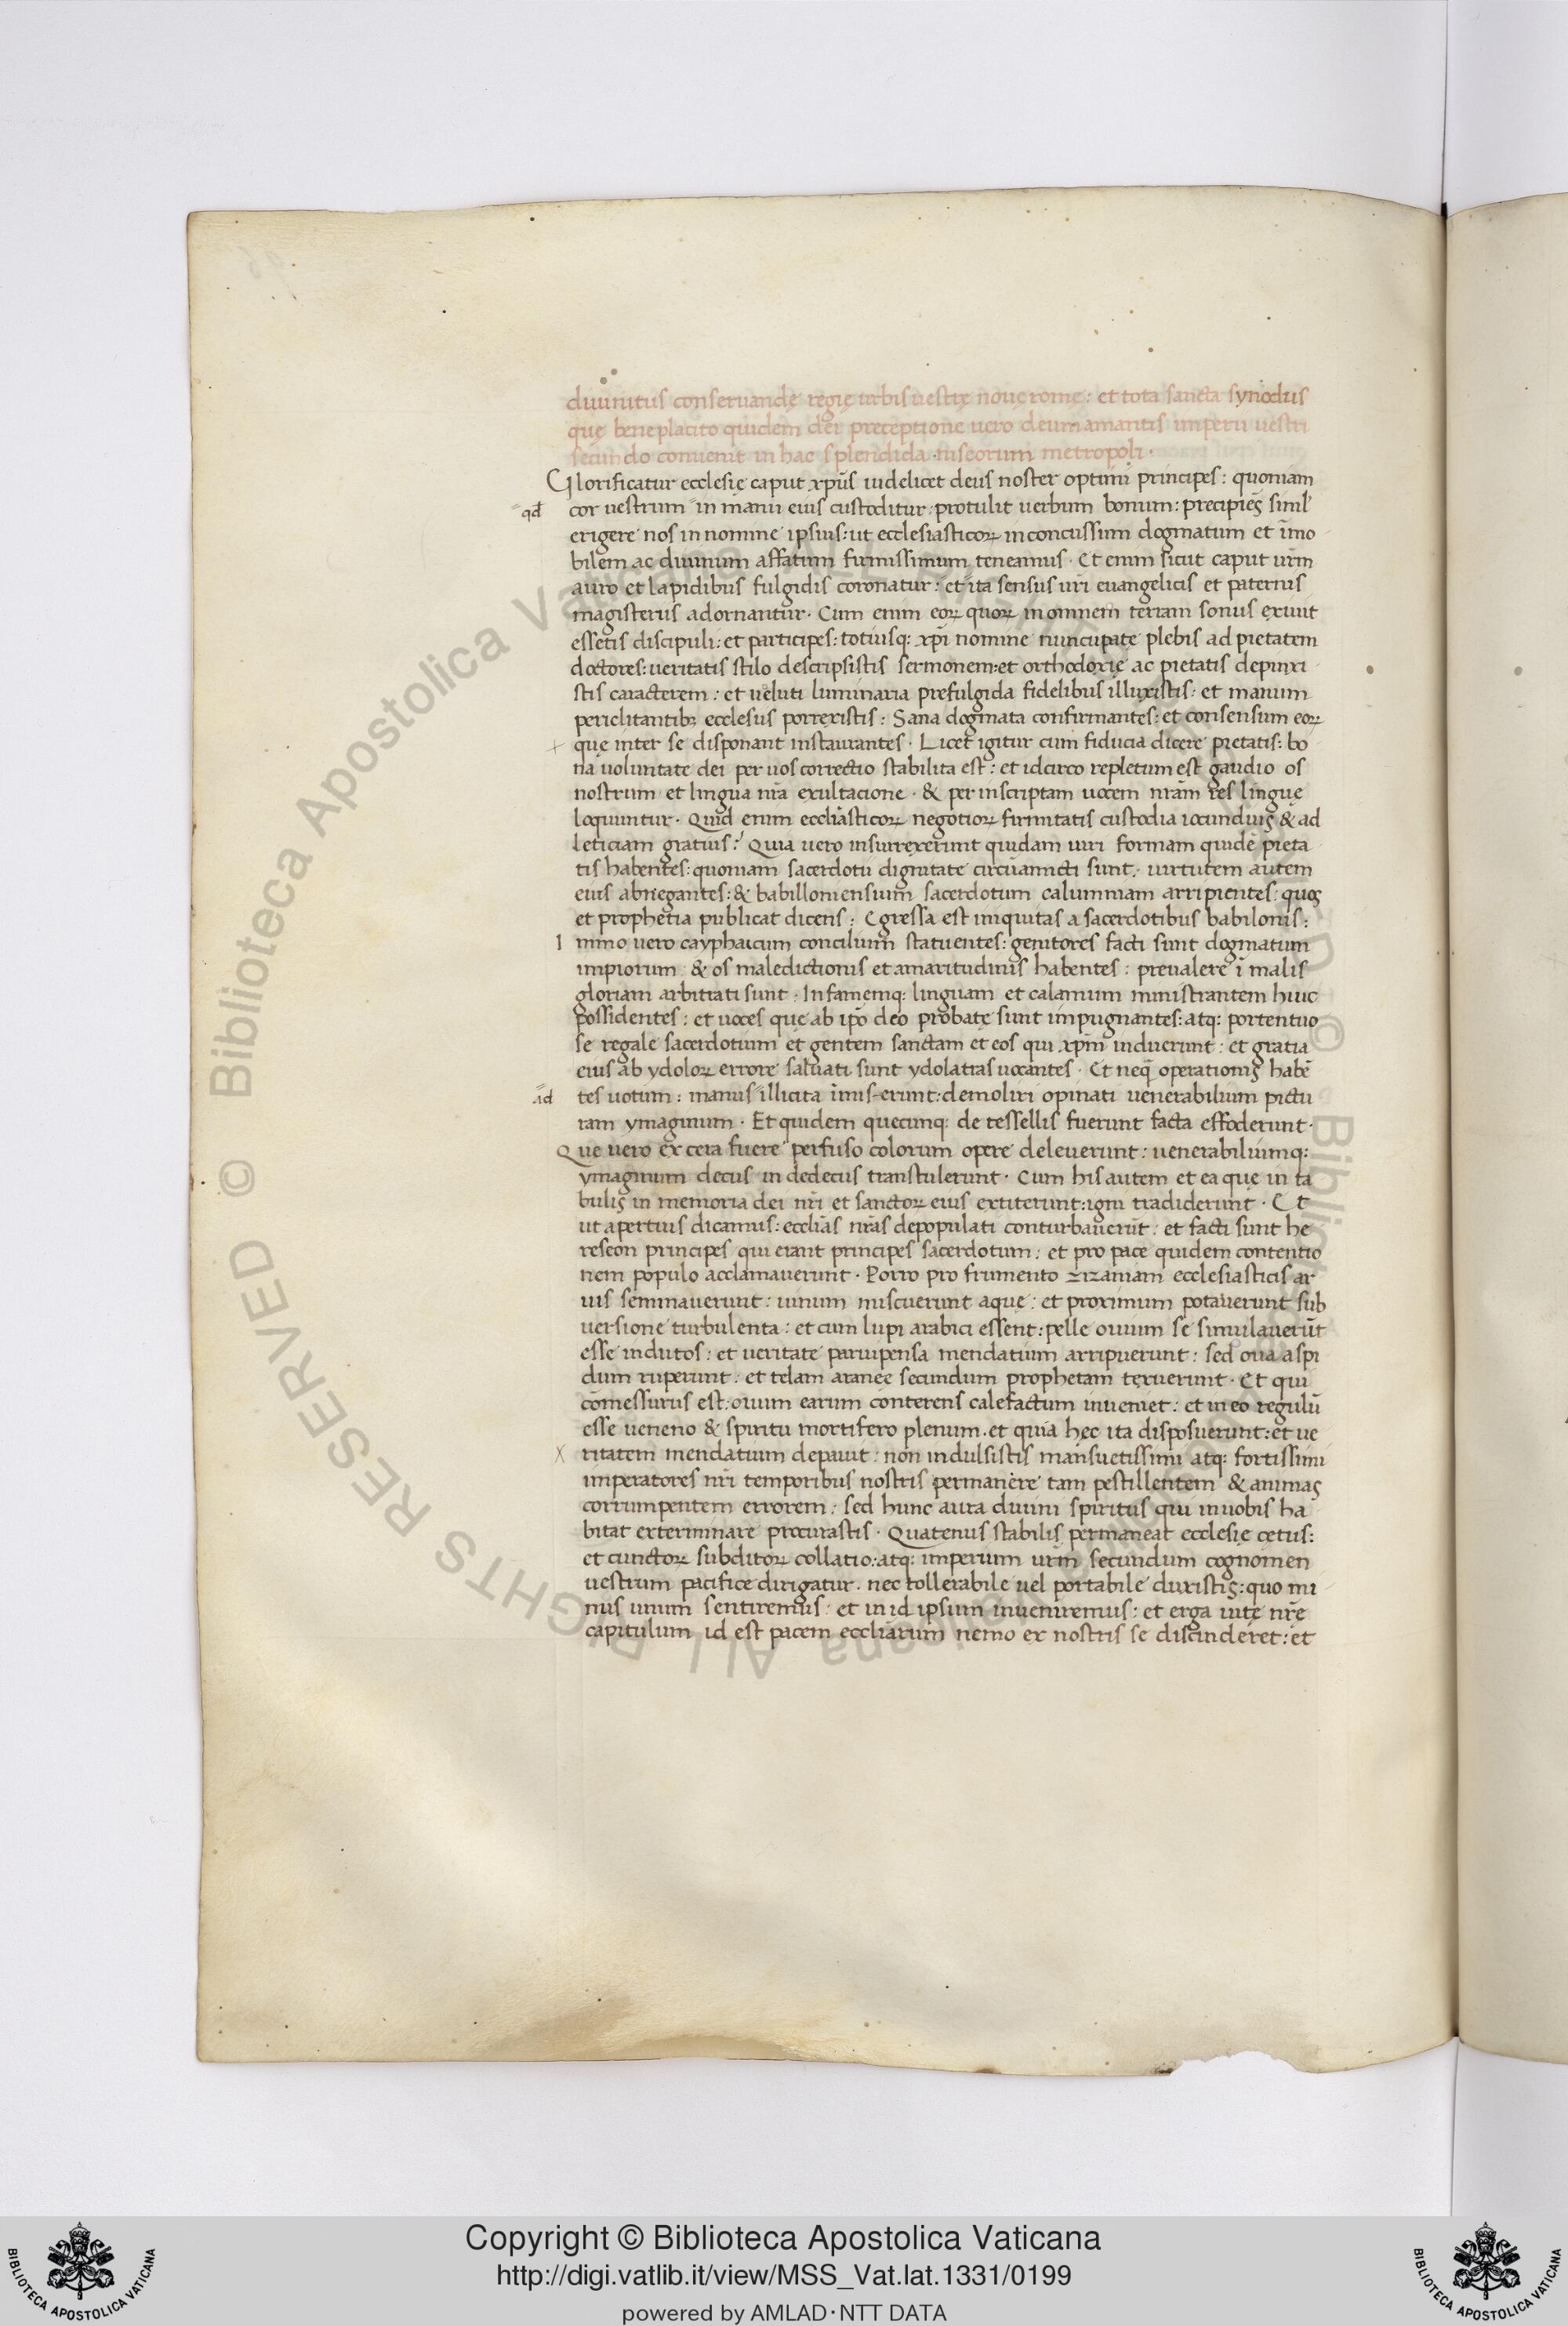 diuinitus conseruandę regię urbis uestrę nouę romę: et tota sancta synodus
quę beneplacito quidem dei preceptione uero deum amantis imperii uestri
secundo conuenit in hac splendida niseorum metropoli.
Glorificatur ecclesię caput xp̄us uidelicet deus noster optimi principes: quoniam
qd̄
cor uestrum in manu eius custoditur protulit uerbum bonum: precipiēs simil'
erigere nos in nomine ipsius: ut ecclesiasticoꝝ inconcussum dogmatum et īmo
bilem ac diuinum affatum firmissimum teneamus. Et enim sicut caput ur̄m
auro et lapidibus fulgidis coronatur: et ita sensus ur̄i euangelicis et paternis
magisteriis adornantur. Cum enim eoꝝ quoꝝ in omnem terram sonus exiuit
essetis discipuli: et participes: totiusq: xp̄i nomine nuncupatę plebis ad pietatem
doctores: ueritatis stilo descripsistis sermonem: et orthodoxię ac pietatis depinxi
stis caracterem: et ueluti luminaria prefulgida fidelibus illuxistis: et manum
periclitantibꝫ ecclesiis porrexistis: Sana dogmata confirmantes: et consensum eoꝝ
quę inter se disponant instaurantes. Licet igitur cum fiducia dicere pietatis: bo
na uoluntate dei per uos correctio stabilita est: et idcirco repletum est gaudio os
nostrum et lingua nr̄a exultacione. & per inscriptam uocem nr̄am res linguę
loquuntur. Quid enim eccliāsticoꝝ negotioꝝ firmitatis custodia iocundius & ad
leticiam gratius? Quia uero insurrexerunt quidam uiri formam quidē pieta
tis habentes: quoniam sacerdotii dignitate circūamicti sunt. uirtutem autem
eius abnegantes: & babilloniensium sacerdotum calumniam arripientes: quos
et prophetia publicat dicens: Egressa est iniquitas a sacerdotibus babilonis:
Immo uero cayphaicum concilium statuentes: genitores facti sunt dogmatum
impiorum: & os maledictionis et amaritudinis habentes: preualere ī malis
gloriam arbitrati sunt. Infamemq: linguam et calamum ministrantem huic
possidentes: et uoces quę ab ip̄o deo probatę sunt impugnantes: atq: portentuo
se regale sacerdotium et gentem sanctam et eos qui xp̄m induerunt: et gratia
eius ab ydoloꝝ errore saluati sunt ydolatras uocantes. Et neq̄ operationis habē
id
tes uotum: manus illicita īmis-erunt: demoliri opinati uenerabilium pictu
ram ymaginum. Et quidem quecunq: de tessellis fuerunt facta effoderunt.
Que uero ex cera fuere perfuso colorum opere deleuerunt: uenerabiliumq:
ymaginum decus in dedecus transtulerunt. Cum his autem et ea quę in ta
bulis in memoria dei nr̄i et sanctoꝝ eius extiterunt: igni tradiderunt. Et
ut apertius dicamus: eccliās nr̄as depopulati conturbauerūt: et facti sunt he
reseon principes qui erant principes sacerdotum: et pro pace quidem contentio
nem populo acclamauerunt. Porro pro frumento zizaniam ecclesiasticis ar
uis seminauerunt: uinum miscuerunt aquę: et proximum potauerunt sub
uersione turbulenta: et cum lupi arabici essent: pelle ouium se simulauerūt
esse indutos: et ueritate paruipensa mendatium arripuerunt: sed oua aspi
dum ruperunt: et telam aranee secundum prophetam texuerunt. Et qui
cōmessurus est: ouum earum conterens calefactum inueniet: et in eo regulū
esse ueneno & spiritu mortifero plenum. et quia hęc ita disposuerunt: et ue
ritatem mendatium depauit: non indulsistis mansuetissimi atq: fortissimi
imperatores nr̄i temporibus nostris permanere tam pestillentem & animas
corrumpentem errorem: sed hunc aura diuini spiritus qui in uobis ha
bitat exterminare procurastis. Quatenus stabilis permaneat ecclesię cetus:
et cunctoꝝ subditoꝝ collatio: atq: imperium ur̄m secundum cognomen
uestrum pacifice dirigatur. nec tollerabile uel portabile duxistis: quo mi
nus unum sentiremus: et in id ipsum inueniremus: et erga uitę nr̄e
capitulum id est pacem eccliārum nemo ex nostris se discinderet: et
© Biblioteca Apostolica Vaticana ALL RIGHTS RESERVED
Copyright © Biblioteca Apostolica Vaticana
http://digi.vatlib.it/view/MSS_Vat.lat.1331/0199
powered by AMLAD·NTT DATA
BIBLIOTECA APOSTOLICA VATICANA
BIBLIOTECA APOSTOLICA VATICANA